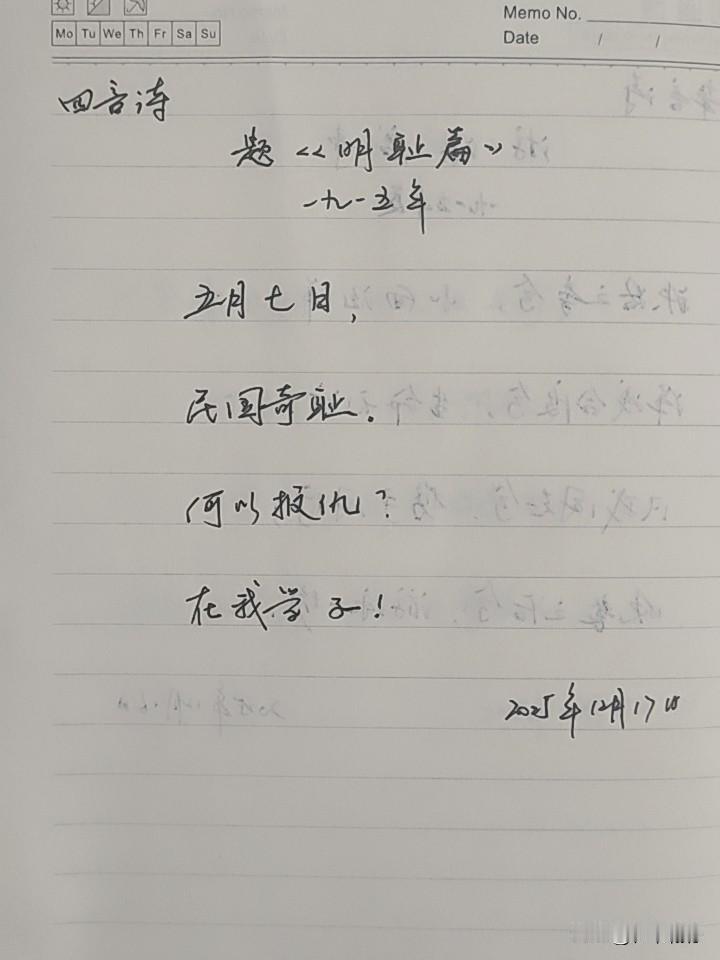 Mo Tu We Th Fr Sa Su
Memo No.
Date / /
四言诗
题《明耻篇》
一九一五年
五月七日，
民国奇耻。
何以报仇？
在我学子！
2025年12月17日